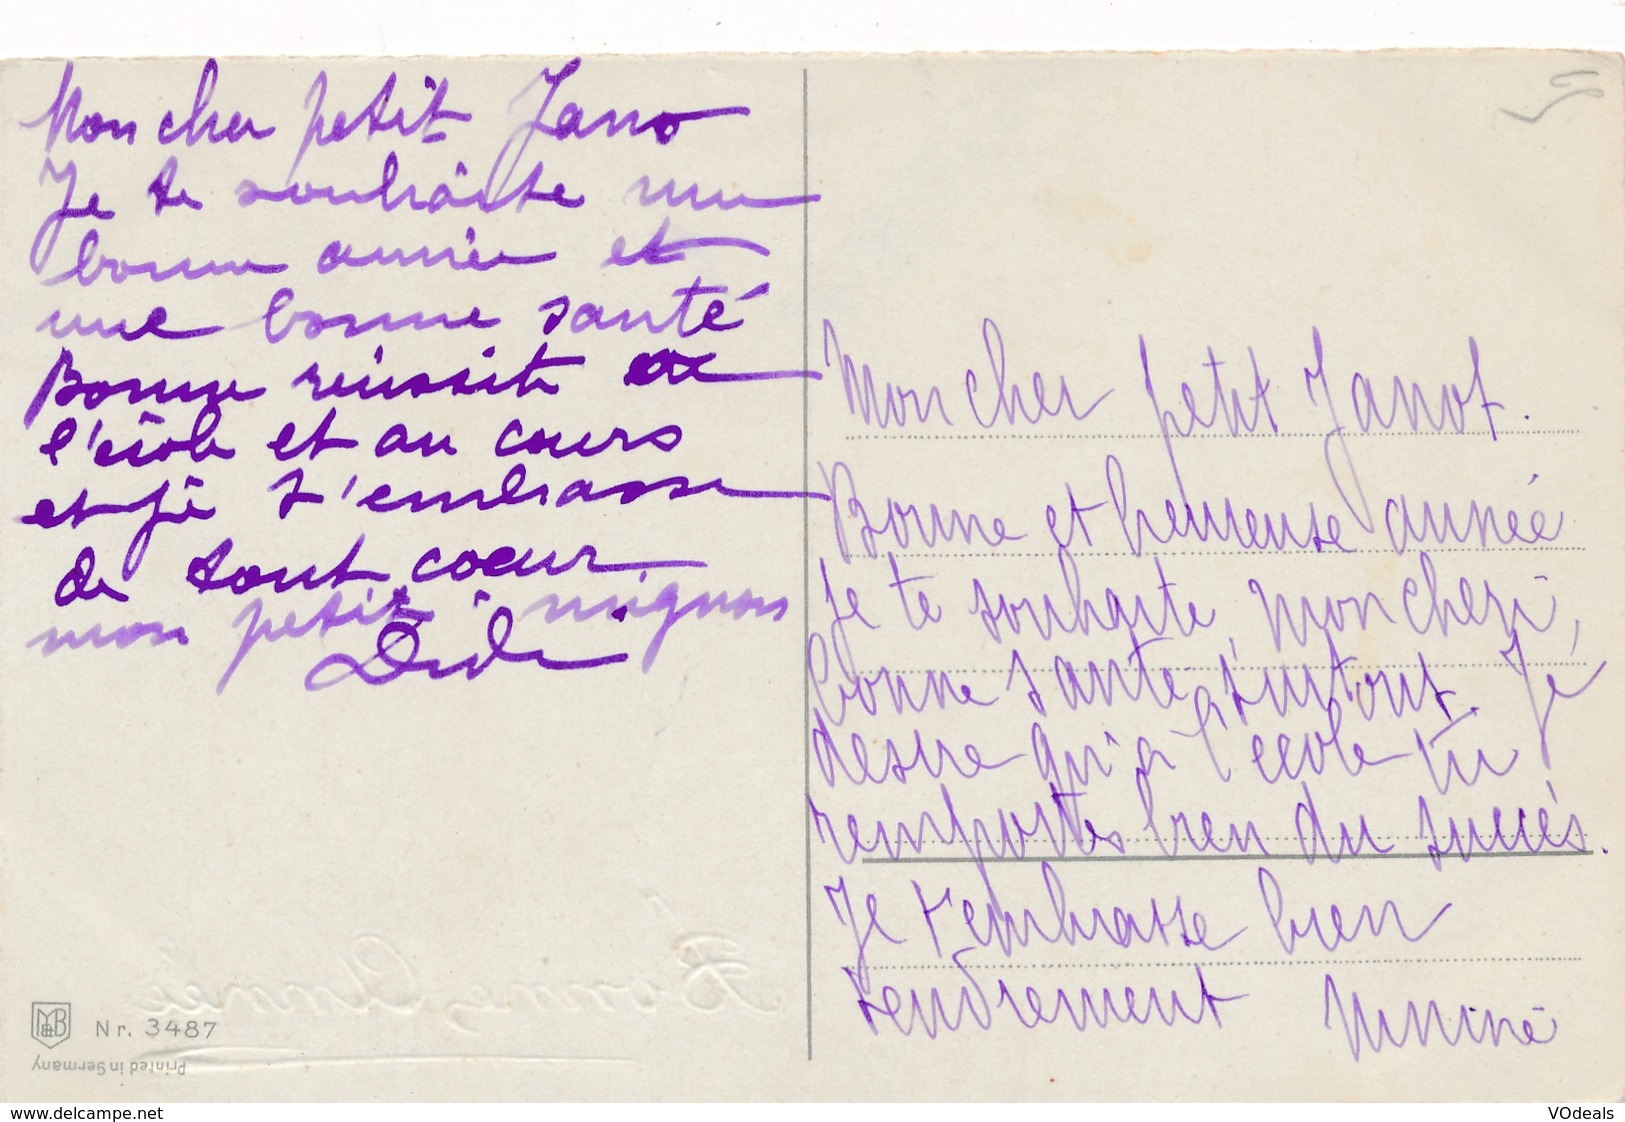 Mon cher petit Jano
Je te souhaite une
bonne année et
une bonne santé
Bonne réussite a
l'école et au cours
et je t'embrasse
de tout coeur
mon petit mignon
Dide
Mon cher petit Janot.
Bonne et heureuse année
je te souhaite, mon cheri,
bonne santé surtout. Je
desire qu'à l'école tu
remportes bien du succés.
Je t'embrasse bien
tendrement Minine
Bonne Année
M&B Nr. 3487
Printed in Germany
www.delcampe.net
VOdeals